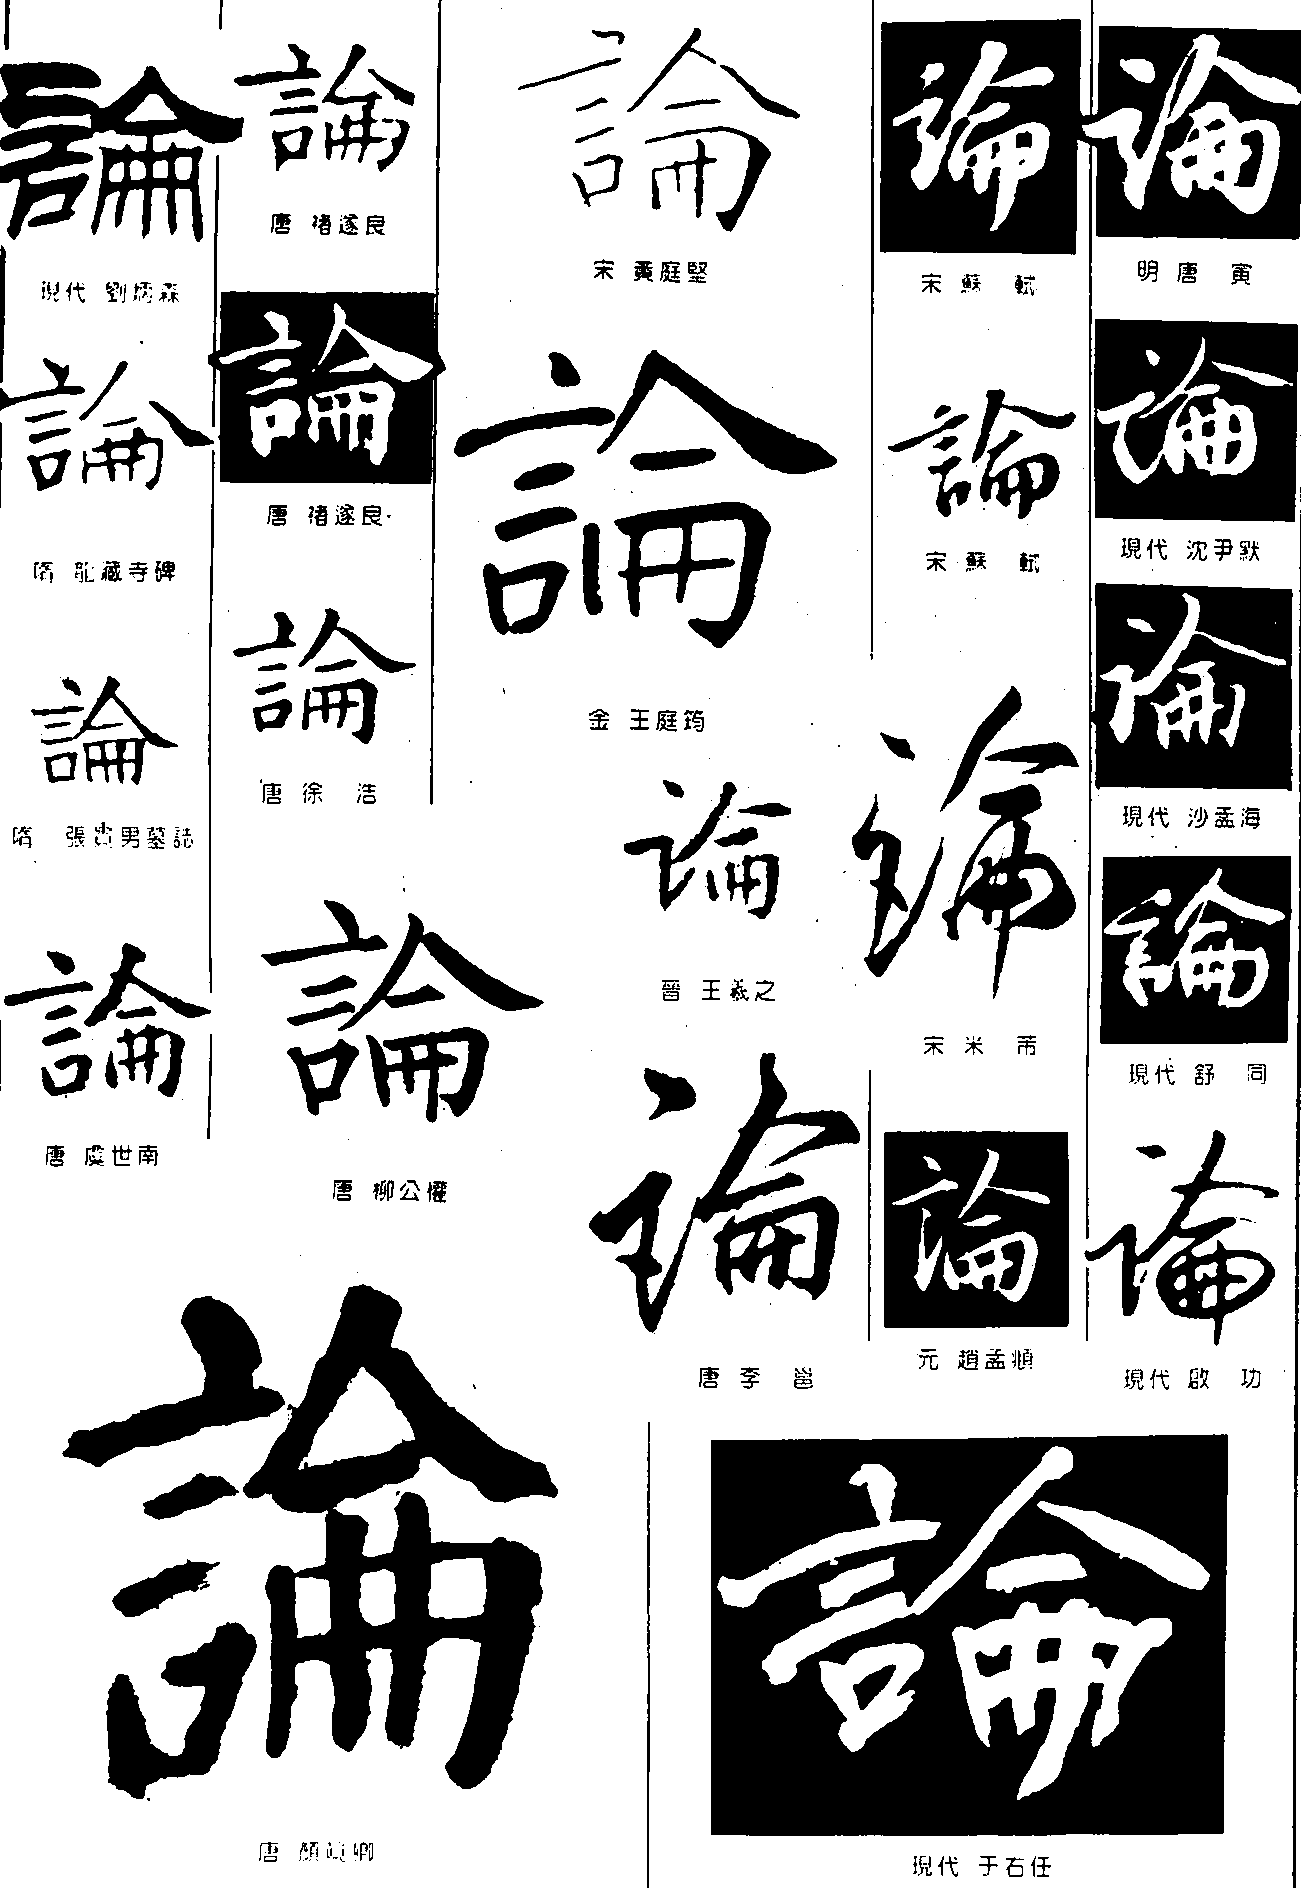 論
現代 劉炳森
論
隋 龍藏寺碑
論
隋 張貴男墓誌
論
唐 虞世南
論
唐 褚遂良
論
唐 褚遂良
論
唐 徐 浩
論
唐 柳公權
論
唐 顏真卿
論
宋 黃庭堅
論
金 王庭筠
論
晉 王羲之
論
唐 李 邕
論
宋 蘇 軾
論
宋 蘇 軾
論
宋 米 芾
論
元 趙孟頫
論
明 唐 寅
論
現代 沈尹默
論
現代 沙孟海
論
現代 舒 同
論
現代 啟 功
論
現代 于右任